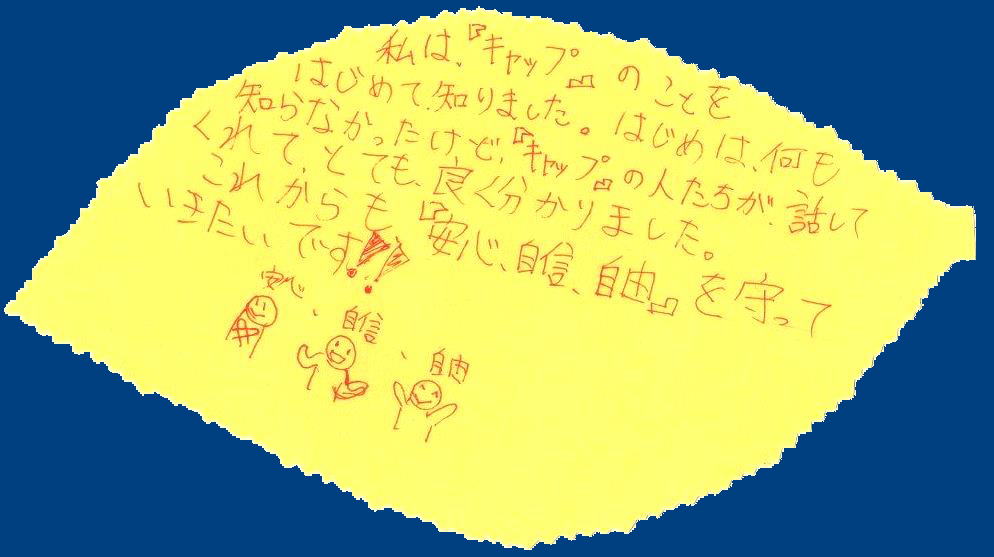 私は、『キャップ』のことを
はじめて、知りました。はじめは、何も
知らなかったけど、『キャップ』の人たちが、話して
くれて、とても、良く分かりました。
これからも『安心、自信、自由』を守って
いきたいです!!
安心、
自信、
自由